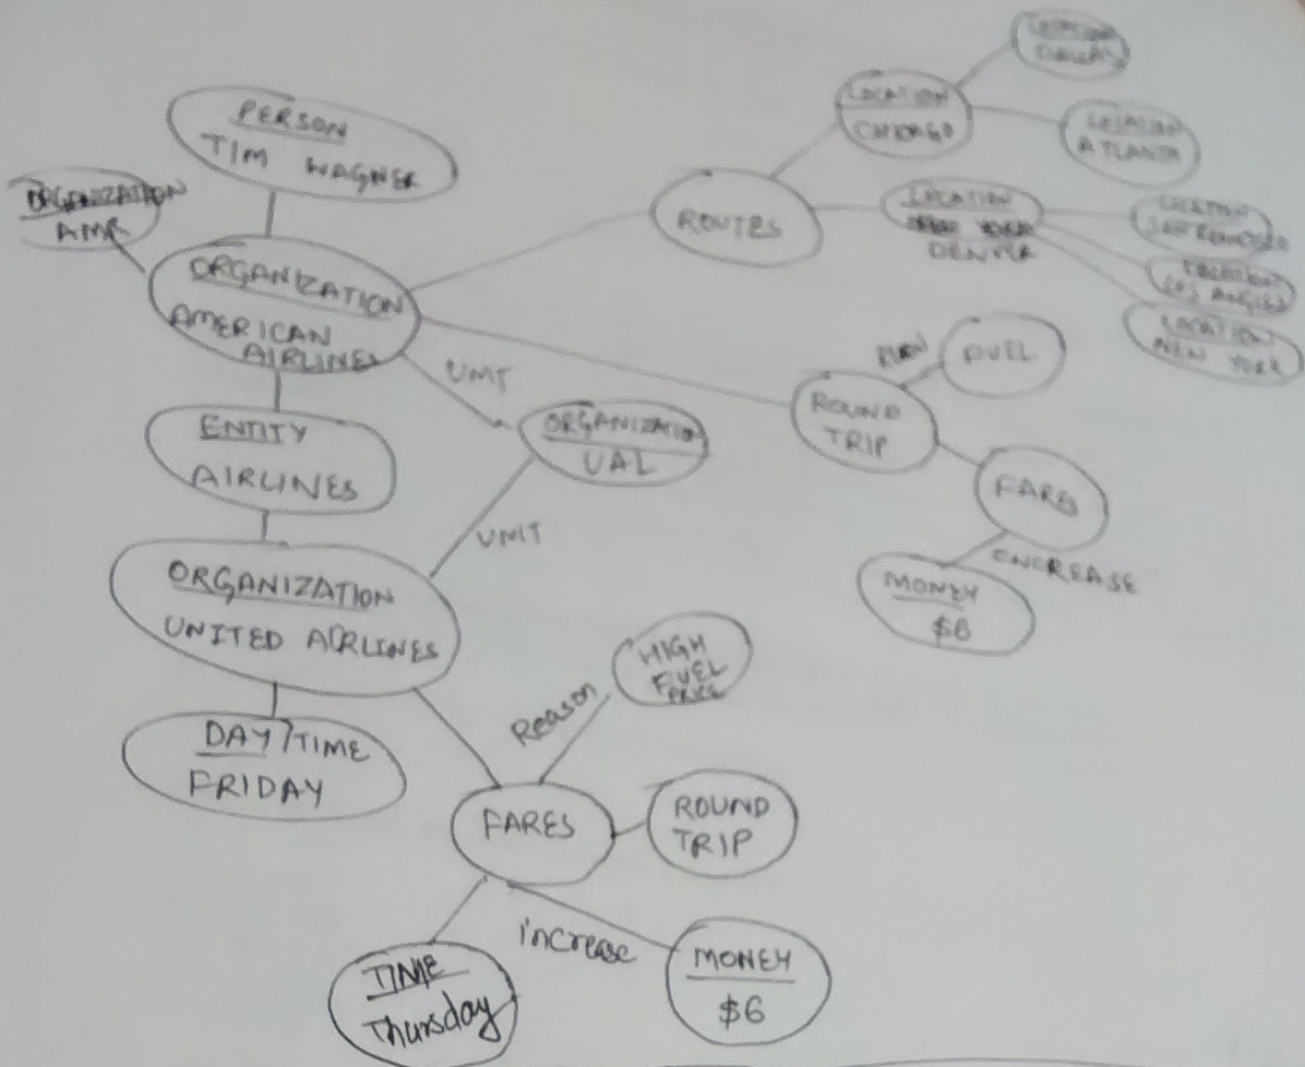 PERSON
TIM WAGNER
ORGANIZATION
AMR
ORGANIZATION
AMERICAN
AIRLINES
ENTITY
AIRLINES
ORGANIZATION
UNITED AIRLINES
DAY/TIME
FRIDAY
UNIT
ORGANIZATION
UAL
UNIT
ROUTES
LOCATION
CHICAGO
LOCATION
DALLAS
LOCATION
ATLANTA
LOCATION
DENVER
LOCATION
SAN FRANCISCO
LOCATION
LOS ANGLES
LOCATION
NEW YORK
ROUND
TRIP
FUEL
FARES
INCREASE
MONEY
$6
FARES
Reason
HIGH
FUEL
PRICE
ROUND
TRIP
increase
MONEY
$6
TIME
Thursday